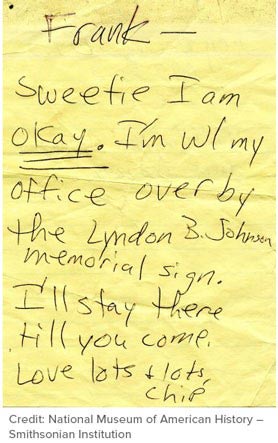 Frank —
Sweetie I am
okay. I'm w/ my
office over by
the Lyndon B. Johnson
memorial sign.
I'll stay there
till you come.
Love lots & lots,
Chip
Credit: National Museum of American History –
Smithsonian Institution